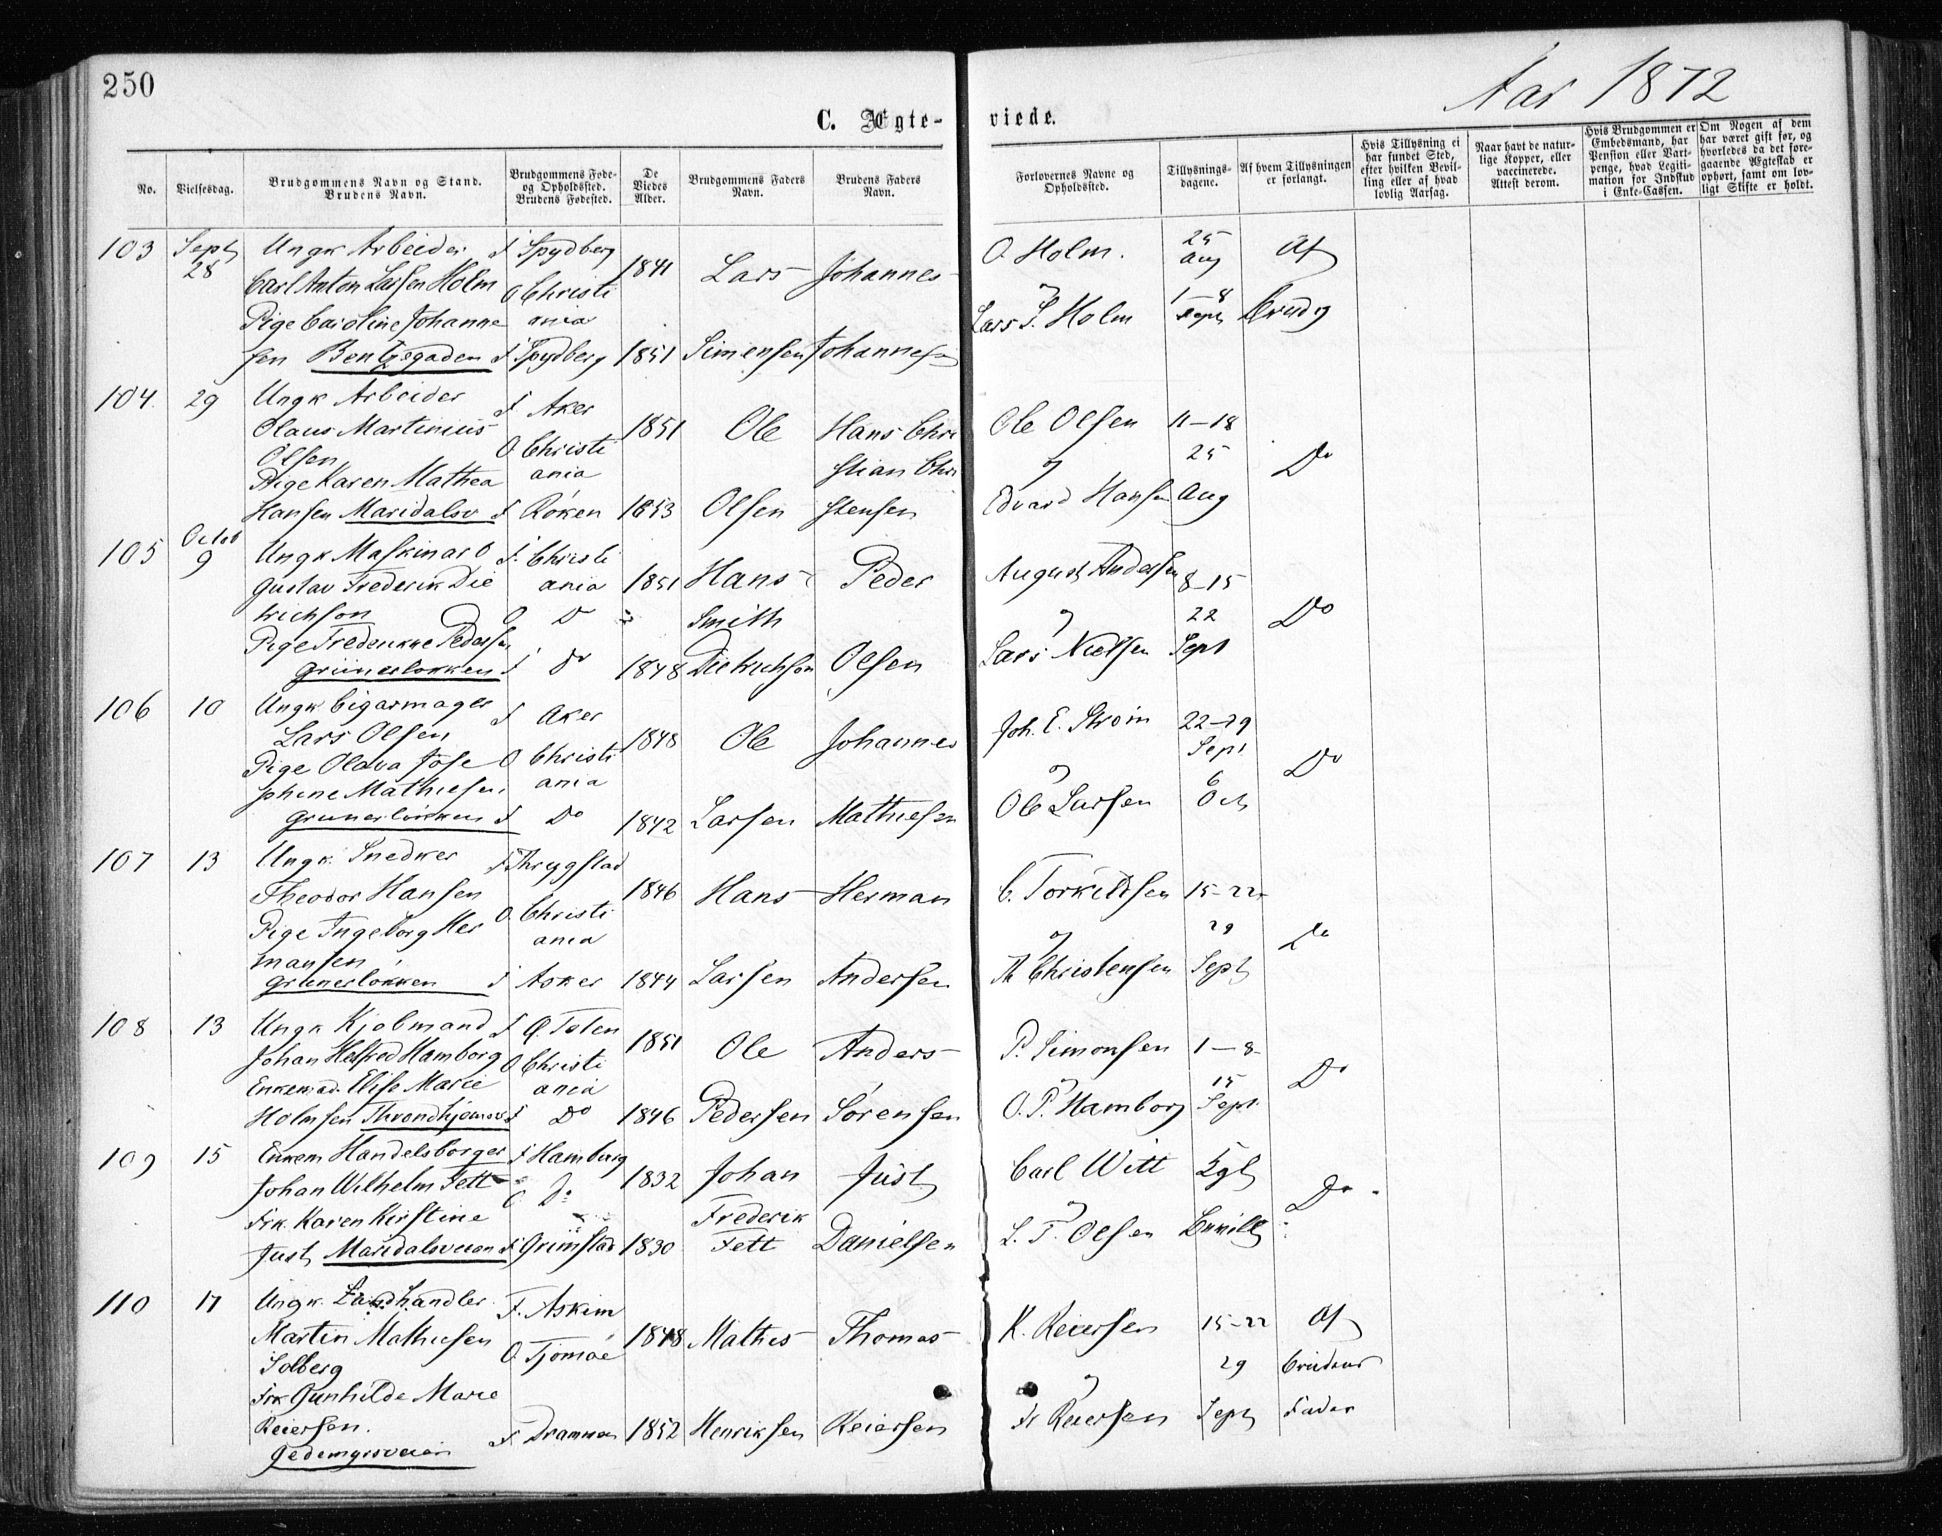 250
Aar 1872
C. Ægte- viede.
No.
Vielsesdag.
Brudgommens Navn og Stand.
Brudens Navn.
Brudgommens Føde-
og Opholdssted.
Brudens Fødested.
De
Viedes
Alder.
Brudgommens Faders
Navn.
Brudens Faders
Navn.
Forlovernes Navne og
Opholdssted.
Tillysnings-
dagene.
Af hvem Tillysningen
er forlangt.
Hvis Tillysning ei
har fundet Sted,
efter hvilken Bevil-
ling eller af hvad
lovlig Aarsag.
Naar havt de natur-
lige Kopper, eller
vaccinerede.
Attest derom.
Hvis Brudgommen er
Embedsmand, har
Pension eller Vart-
penge, hvad Legiti-
mation for Indskud
i Enke-Cassen.
Om Nogen af dem
har været gift før, og
hvorledes da det fore-
gaaende Ægteskab er
ophørt, samt om lov-
ligt Skifte er holdt.
103 Sept 28
Ungk Arbeider
Carl Anton Larsen Holm
Pige Caroline Johanne
sen Bentsegaden
F Spydberg
O Christi
ania
F Spydberg
1841
1851
Lars
Simensen
Johannes
Johannesen
O. Holm.
og
Lars S. Holm
25
Aug
1–8
Sept
Af
Brudg
104 29
Ungk Arbeider
Olaus Martinius
Olsen
Pige Karen Mathea
Hansen Maridalsv
F Aker
O Christi
ania
F Røken
1851
1853
Ole
Olsen
Hans Chri
stian Chri
stensen
Ole Olsen
og
Edvard Hansen
11–18
25
Aug
Do
105 Octob 9
Ungk Maskinarb
Gustav Frederik Die
trichson
Pige Frederikke Pedersen
Grünerløkken
F. Christi
ania
O Do
F Do
1851
1848
Hans
Smith
Dietrichson
Peder
Olsen
August Andersen
og
Lars Nielsen
8–15
22
Sept
Do
106 10
Ungk Cigarmager
Lars Olsen
Pige Olava Jose
phine Mathiesen
Grünerløkken
F Aker
O Christi
ania
F Do
1848
1842
Ole
Larsen
Johannes
Mathiesen
Joh. E. Strøm
og
Ole Larsen
22–29
Sept
6
Oct
Do
107 13
Ungk. Snedker
Theodor Hansen
Pige Ingeborg Her
mansen
Grünerløkken
F Thrygstad
O. Christi
ania
F Asker
1846
1844
Hans
Larsen
Herman
Andersen
C. Torkildsen
og
Th Christensen
15–22
29
Sept
Do
108 13
Ungk Kjøbmand
Johan Helfred Hamborg
Enkemad. Elise Marie
Holmsen Throndhjemsv
F Ø. Toten
O Christi
ania
F Do
1851
1846
Ole
Pedersen
Anders
Sørensen
P. Simonsen
og
O. P. Hamborg
1–8
15
Sept.
Do
109 15
Enkem Handelsborger
Johan Wilhelm Fett
Frk. Karen Kirstine
Just Maridalsveien
F Hamburg
O Do
F Grimstad
1832
1830
Johan
Frederik
Fett
Just
Danielsen
Carl Witt
og
L. T. Olsen
Kgl
Bevill
Do
110 17
Ungk. Landhandler
Martin Mathiesen
Solberg
Frk Gunhilde Marie
Reiersen.
Gedemyrsveien
F. Askim
O. Tjømøe
F. Drammen
1848
1852
Mathis
Henriksen
Thomas
Reiersen
K. Reiersen
og
Fr Reiersen
15–22
29
Sept
Af
Brudens
Fader